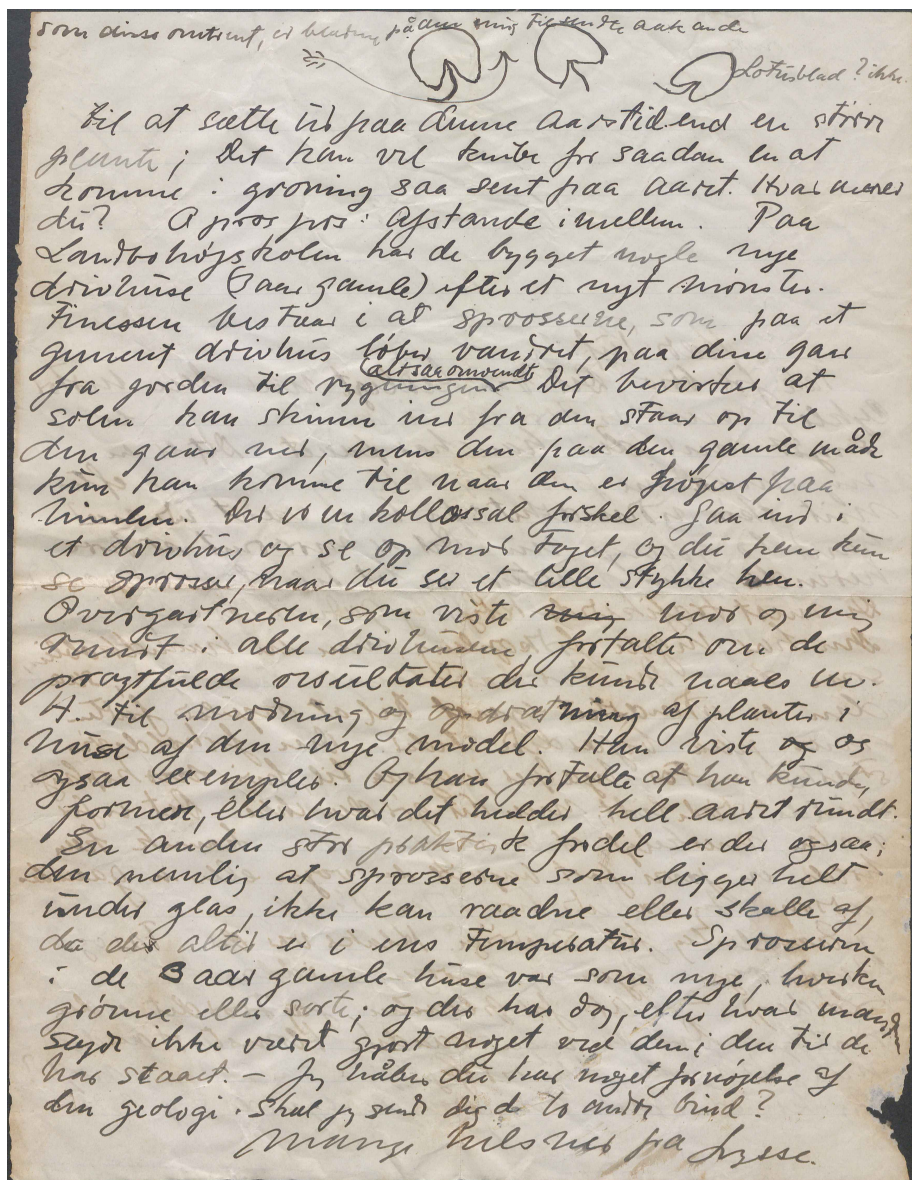 som disse omtrent, er bladene på den mig tilsendte aakande
Lotusblad? ikke.
til at sætte ud paa denne aarstid end en større
plante; Det kan vel knibe for saadan en at
komme i groning saa sent paa aaret. Hvad mener
du? Apropos: Afstande imellem. Paa
Landbohøjskolen har de bygget nogle nye
drivhuse (3 aar gamle) efter et nyt mønster.
Finessen bestaar i at sprosserne, som paa et
gement drivhus løber vandret, paa disse gaar
(altsaa omvendt)
fra jorden til rygningen. Det bevirker at
solen kan skinne ind fra den staar op til
den gaar ned, mens den paa den gamle måde
kun kan komme til naar den er højest paa
himlen. Det er en kollossal forskel. Gaa ind i
et drivhus og se op mod taget, og du kan kun
se sprosser, naar du ser et lille stykke hen.
Overgartneren, som viste mig mor og mig
rundt i alle drivhusene fortalte om de
pragtfulde resultater der kunde naaes m.
H. til modning og opdrætning af planter i
huse af den nye model. Han viste og os
ogsaa exempler. Og han fortalte at han kunde,
formere, eller hvad det hedder, hele aaret rundt.
En anden stor praktisk fordel er der ogsaa;
den nemlig at sprosserne som ligger helt
under glas, ikke kan raadne eller skalle af,
da der altid er i ens temperatur. Sprosserne
i de 3 aar gamle huse var som nye, hverken
grønne eller sorte; og der har dog, efter hvad manden
sagde ikke været gjort noget ved dem i den tid de
har staaet. – Jeg håber du har noget fornøjelse af
den geologi. Skal jeg sende dig de to andre bind?
Mange hilsner fra